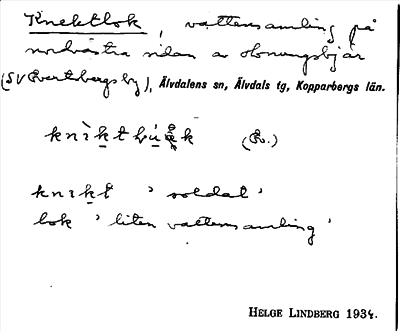 Knektlok, vattensamling på
nordvästra sidan av
(SV Evertsbergs by), Älvdalens sn, Älvdals tg, Kopparbergs län.
(Ä.)
knıkt 'soldat'
lok 'liten vattensamling'
HELGE LINDBERG 1934.